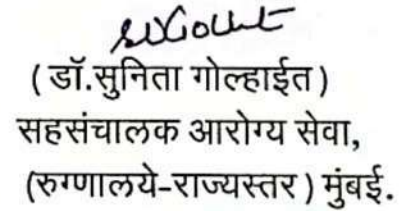 ( डॉ.सुनिता गोल्हाईत )
सहसंचालक आरोग्य सेवा,
(रुग्णालये-राज्यस्तर ) मुंबई.